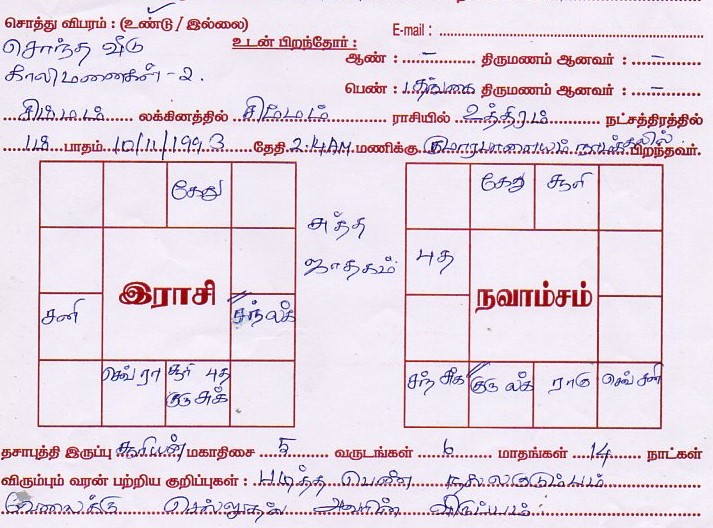 சொத்து விபரம் : (உண்டு / இல்லை)
E-mail :
சொந்த வீடு
உடன் பிறந்தோர் :
ஆண் : – திருமணம் ஆனவர் : –
காலிமணைகள் - 2.
பெண் : 1 தங்கை திருமணம் ஆனவர் : –
சிம்மம் லக்கினத்தில் சிம்மம் ராசியில் உத்திரம் நட்சத்திரத்தில்
1ம் பாதம் 10/11/1993 தேதி 2.4AM மணிக்கு குமாரபாளையம் நாமக்கலில் பிறந்தவர்.
கேது
கேது சூரி
சுத்த
ஜாதகம்
புத
இராசி
நவாம்சம்
சனி
சந் லக்
செவ் ரா
சூரி புத
குரு சுக்
சந் சுக்
குரு லக்
ராகு
செவ் சனி
தசாபுத்தி இருப்பு சூரியன் மகாதிசை 5 வருடங்கள் 6 மாதங்கள் 14 நாட்கள்
விரும்பும் வரன் பற்றிய குறிப்புகள் : படித்த பெண் நல்லகுடும்பம்
வேலைக்கு செல்லுதல் அவரின் விருப்பம்.